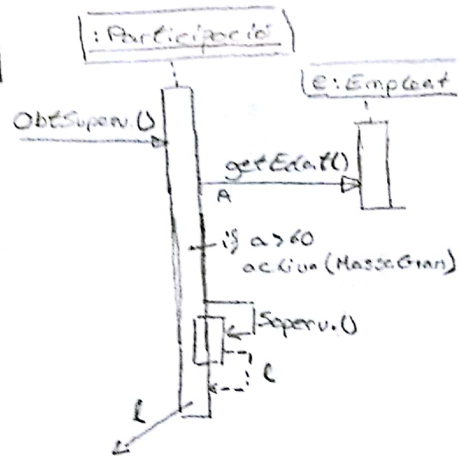 :Participació
e:Empleat
ObtSuperv.()
getEdat()
A
if a>60
activa(MassaGran)
Superv.()
l
l